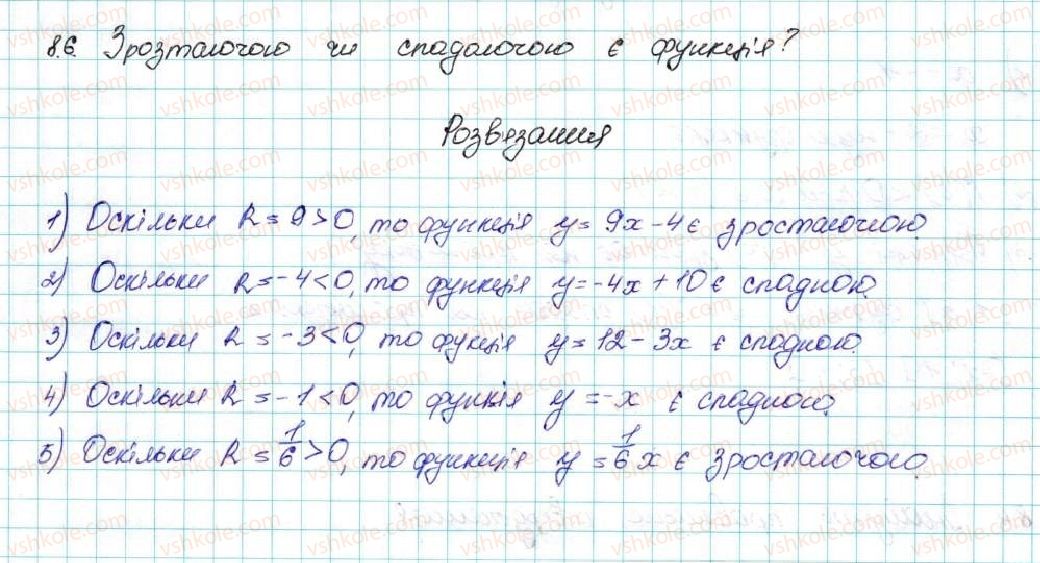 8.6. Зрозтаючою чи спадаючою є функція?
Розвязання
1) Оскільки k = 9 > 0, то функція y = 9x - 4 є зростаючою.
2) Оскільки k = -4 < 0, то функція y = -4x + 10 є спадною.
3) Оскільки k = -3 < 0, то функція y = 12 - 3x є спадною.
4) Оскільки k = -1 < 0, то функія y = -x є спадною.
5) Оскільки k = 1/6 > 0, то функція y = 1/6 x є зростаючою.